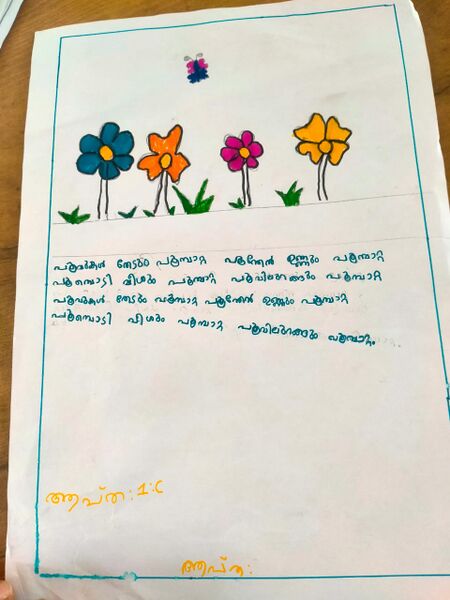 പൂവുകൾ തേടും പൂമ്പാറ്റ പൂന്തേൻ ഉണ്ണും പൂമ്പാറ്റ
പൂമ്പൊടി വീശും പൂമ്പാറ്റ പൂവിലുറങ്ങും പൂമ്പാറ്റ
പൂവുകൾ തേടും പൂമ്പാറ്റ പൂന്തേൻ ഉണ്ണും പൂമ്പാറ്റ
പൂമ്പൊടി വീശും പൂമ്പാറ്റ പൂവിലുറങ്ങും പൂമ്പാറ്റ.
ആപ്ത: 1:C
ആപ്ത: